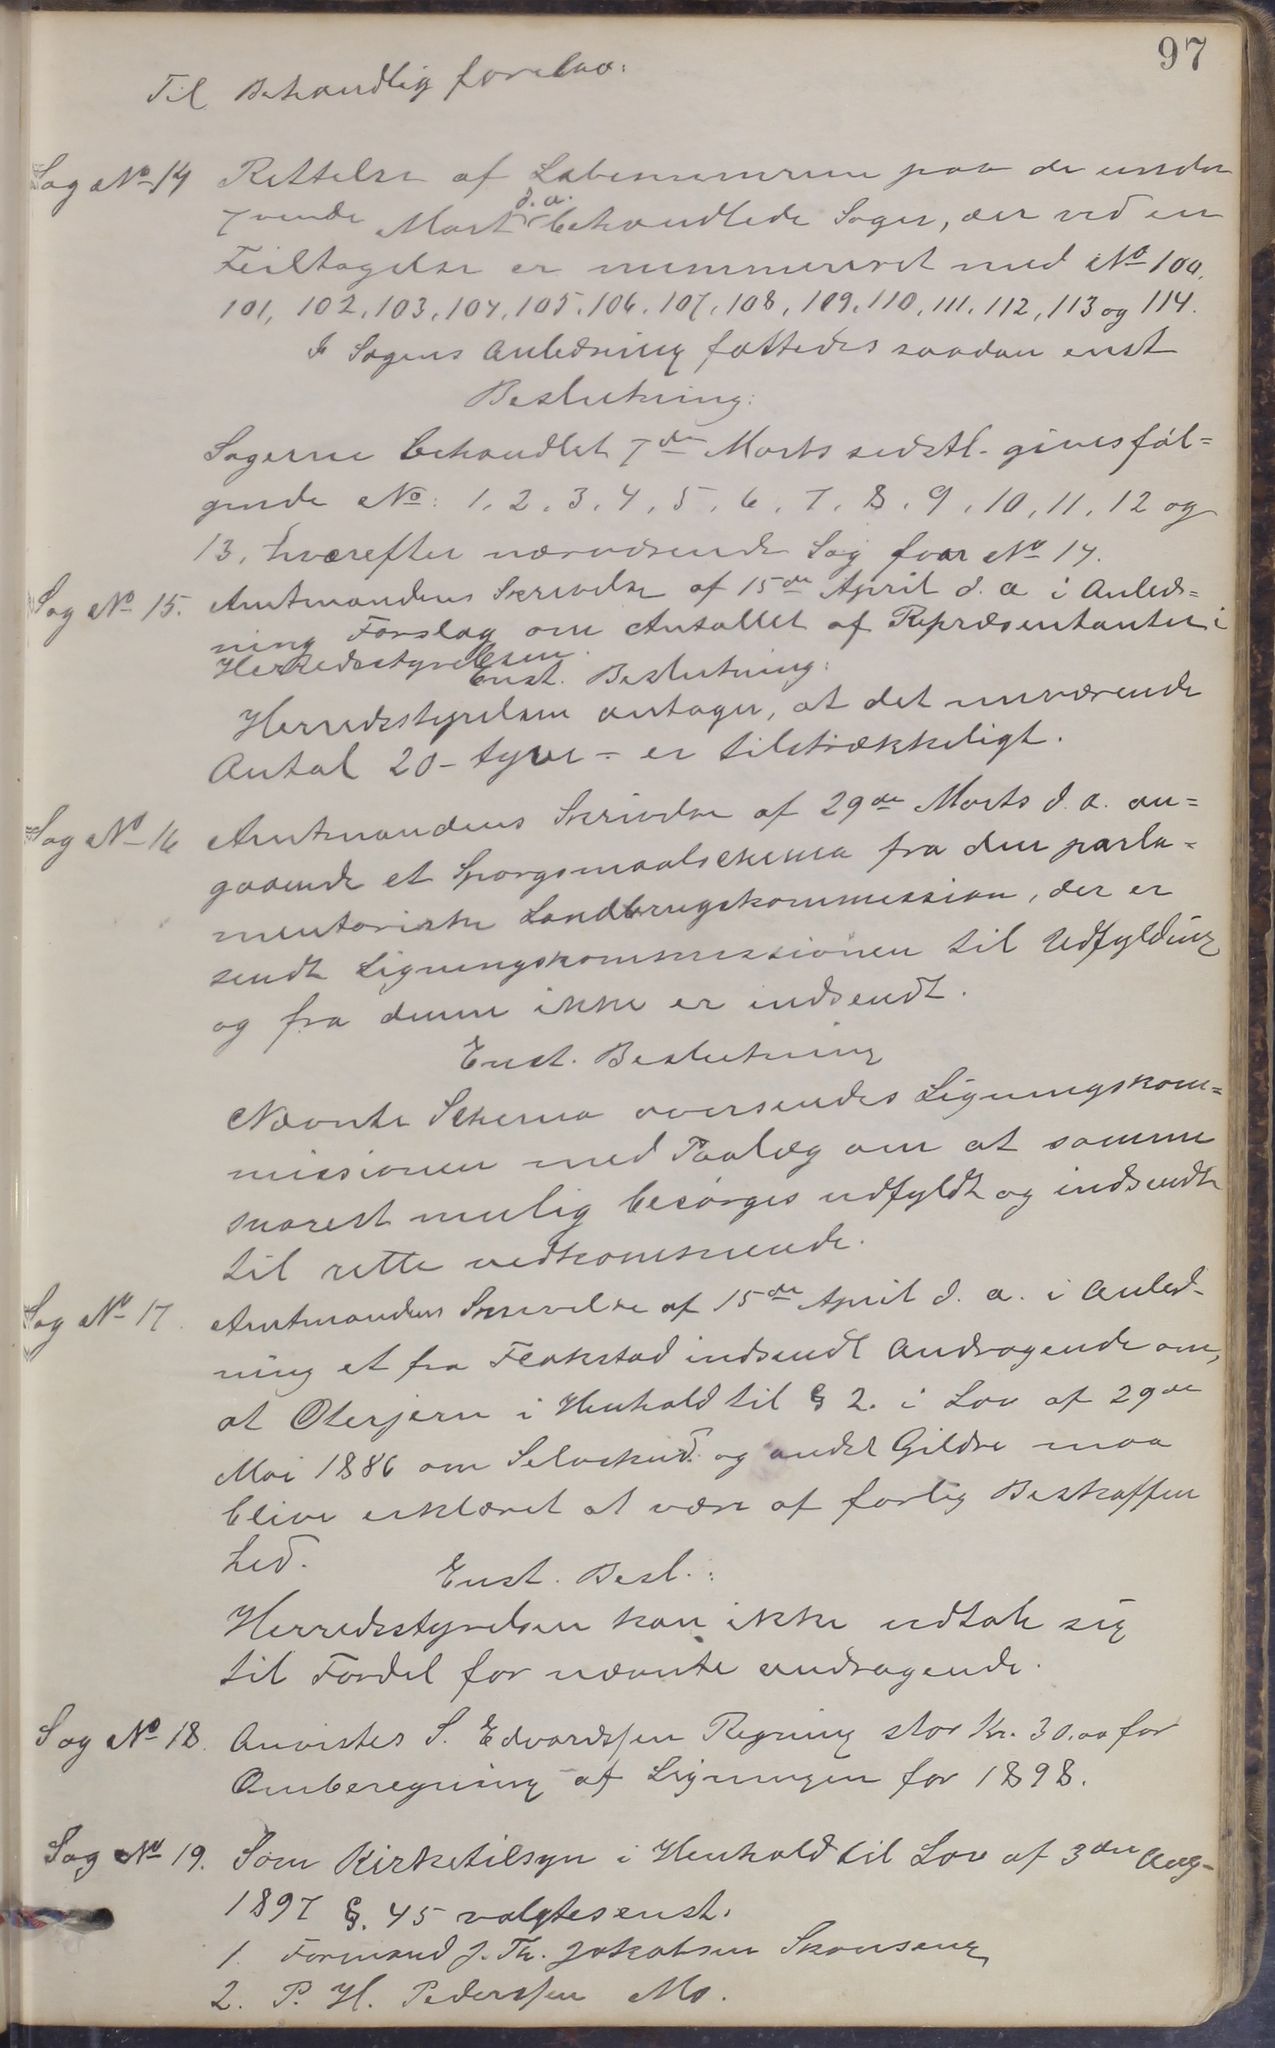 97
Til Behandlig forelaa:
Sag No 14 Rettelse af Løbenumerne paa de under
7vende Mart d. a. behandlede Sager, der ved en
Feiltagelse er nummereret med No 100,
101, 102, 103, 104, 105, 106, 107, 108, 109, 110, 111, 112, 113 og 114.
I Sagens Anledning fattedes saadan enst
Beslutning:
Sagerne behandlet 7de Marts sidstl. gives føl=
gende No: 1, 2, 3, 4, 5, 6, 7, 8, 9, 10, 11, 12 og
13, hvorefter nærværende Sag faar No 14.
Sag No 15. Amtmandens Skrivelse af 15de April d. a. i Anled=
ning Forslag om Antallet af Repræsentanter i
Herredsstyrelsen.
Enst. Beslutning:
Herredsstyrelsen antager, at det nuværende
Antal 20 - tyve - er tilstrækkeligt.
Sag No 16 Amtmandens Skrivelse af 29de Marts d. a. an=
gaaende et Spørgsmaalschema fra den parla=
mentariske Landbrugskommission, der er
sendt Ligningskommissionen til Udfylding
og fra denne ikke er indsendt.
Enst. Beslutning
Nævnte Schema oversendes Ligningskom=
missionen med Paalæg om at samme
snarest mulig besørges udfyldt og indsendt
til rette vedkommende.
Sag No 17. Amtmandens Skrivelse af 15de April d. a. i Anled-
ning et fra Flakstad indsendt Andragende om,
at Oterjern i Henhold til § 2. i Lov af 29de
Mai 1886 om Selvskud og andet Gildre maa
blive erklæret at være af farlig Beskaffen
hed.
Enst. Besl.:
Herredsstyrelsen kan ikke udtale sig
til Fordel for nævnte andragende.
Sag No 18. Anvistes S. Edvardssen Regning stor Kr. 30.00 for
Omberegning af Ligningen for 1898.
Sag No 19. Som Kirketilsyn i Henhold til Lov af 3die Aug-
1897 §. 45 valgtes enst.
1. Formand J. Th. Jakobsen Skonseng
2. P. H. Pederssen Mo.